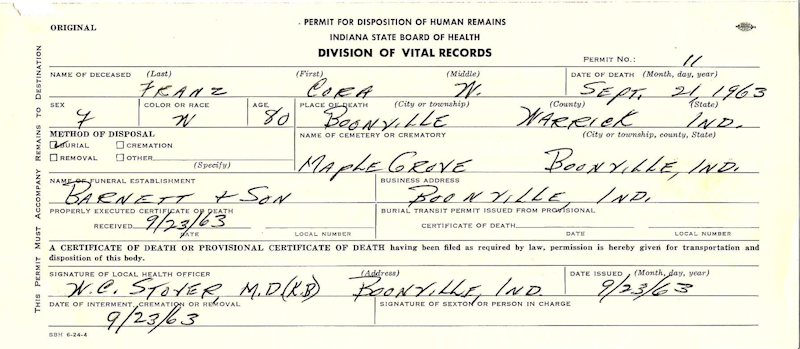 ORIGINAL
PERMIT FOR DISPOSITION OF HUMAN REMAINS
INDIANA STATE BOARD OF HEALTH
DIVISION OF VITAL RECORDS
PERMIT NO.: 11
THIS PERMIT MUST ACCOMPANY REMAINS TO DESTINATION
NAME OF DECEASED (Last) (First) (Middle) DATE OF DEATH (Month, day, year)
FRANZ CORA N. SEPT. 21, 1963
SEX COLOR OR RACE AGE PLACE OF DEATH (City or township) (County) (State)
F W 80 BOONVILLE WARRICK IND.
METHOD OF DISPOSAL NAME OF CEMETERY OR CREMATORY (City or township, county, State)
BURIAL CREMATION
REMOVAL OTHER (Specify) MAPLE GROVE BOONVILLE, IND.
NAME OF FUNERAL ESTABLISHMENT BUSINESS ADDRESS
BARNETT + SON BOONVILLE, IND.
PROPERLY EXECUTED CERTIFICATE OF DEATH BURIAL TRANSIT PERMIT ISSUED FROM PROVISIONAL
RECEIVED 9/23/63 CERTIFICATE OF DEATH
DATE LOCAL NUMBER DATE LOCAL NUMBER
A CERTIFICATE OF DEATH OR PROVISIONAL CERTIFICATE OF DEATH having been filed as required by law, permission is hereby given for transportation and
disposition of this body.
SIGNATURE OF LOCAL HEALTH OFFICER (Address) DATE ISSUED (Month, day, year)
W.C. STOVER, M.D. (K.B) BOONVILLE, IND. 9/23/63
DATE OF INTERMENT, CREMATION OR REMOVAL SIGNATURE OF SEXTON OR PERSON IN CHARGE
9/23/63
SBH 6-24-4